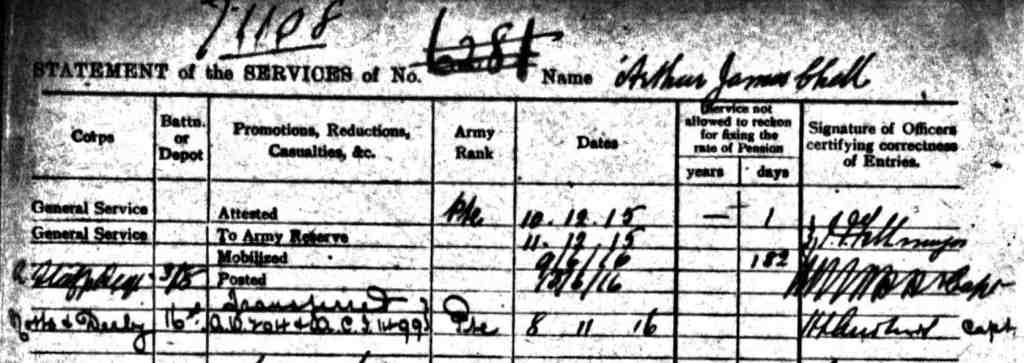 71108
STATEMENT of the SERVICES of No. 6281 Name Arthur James Chell
Corps Battn. or Depot Promotions, Reductions, Casualties, &c. Army Rank Dates Service not allowed to reckon for fixing the rate of Pension years days Signature of Officers certifying correctness of Entries.
General Service Attested Pte 10. 12. 15 — 1
General Service To Army Reserve 11. 12. 15 Major
Mobilized 9/6/16 182
3/5 Posted /6/16 Capt
Transferred
Notts & Derby 16th A.C.I. 1499 Pte 8 11 16 Capt.